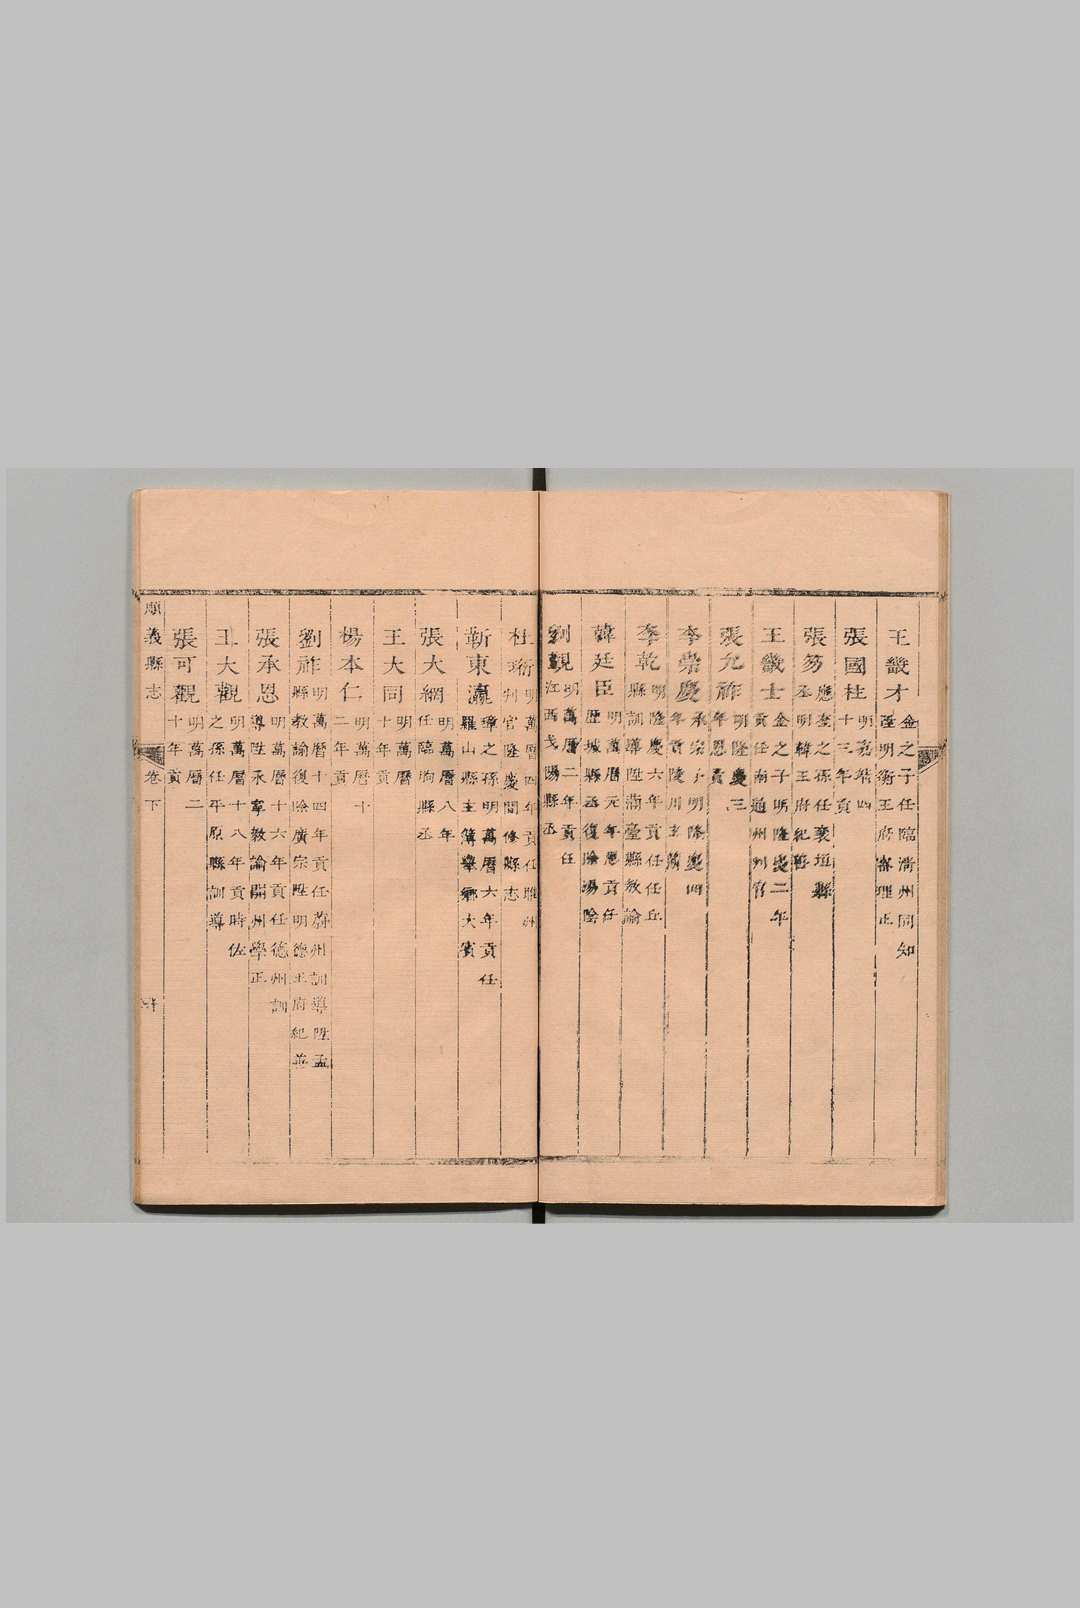 王畿才 金之子任臨淸州同知
陞明衡王府審理正
張國柱 明嘉靖四
十三年貢
張芴 應奎之孫任襄垣縣
丞明韓王府紀善
王畿士 金之子明隆慶二年
貢任南通州州官
張允祚 明隆慶三
年恩貢
李榮慶 承宗子明隆慶四
年貢陵川主簿
李乾 明隆慶六年貢任任丘
縣訓導陞滿臺縣教諭
韓廷臣 明萬曆元年恩貢任
歷城縣丞復除湯陰
劉觀 明萬曆二年貢任
江西弋陽縣丞
杜珩 明萬曆四年貢任睢州
判官隆慶間修縣志
靳東瀛 璋之孫明萬曆六年貢任
羅山縣主簿舉鄉大賓
張大綱 明萬曆八年
任臨朐縣丞
王大同 明萬曆
十年貢
楊本仁 明萬曆十
二年貢
劉祚 明萬曆十四年貢任蔚州訓導陞孟
縣教諭復除廣宗陞明德王府紀善
張承恩 明萬曆十六年貢任德州訓
導陞永寧教諭開州學正
王大觀 明萬曆十八年貢時佐
之孫任平原縣訓導
張可觀 明萬曆二
十年貢
順義縣志 卷下